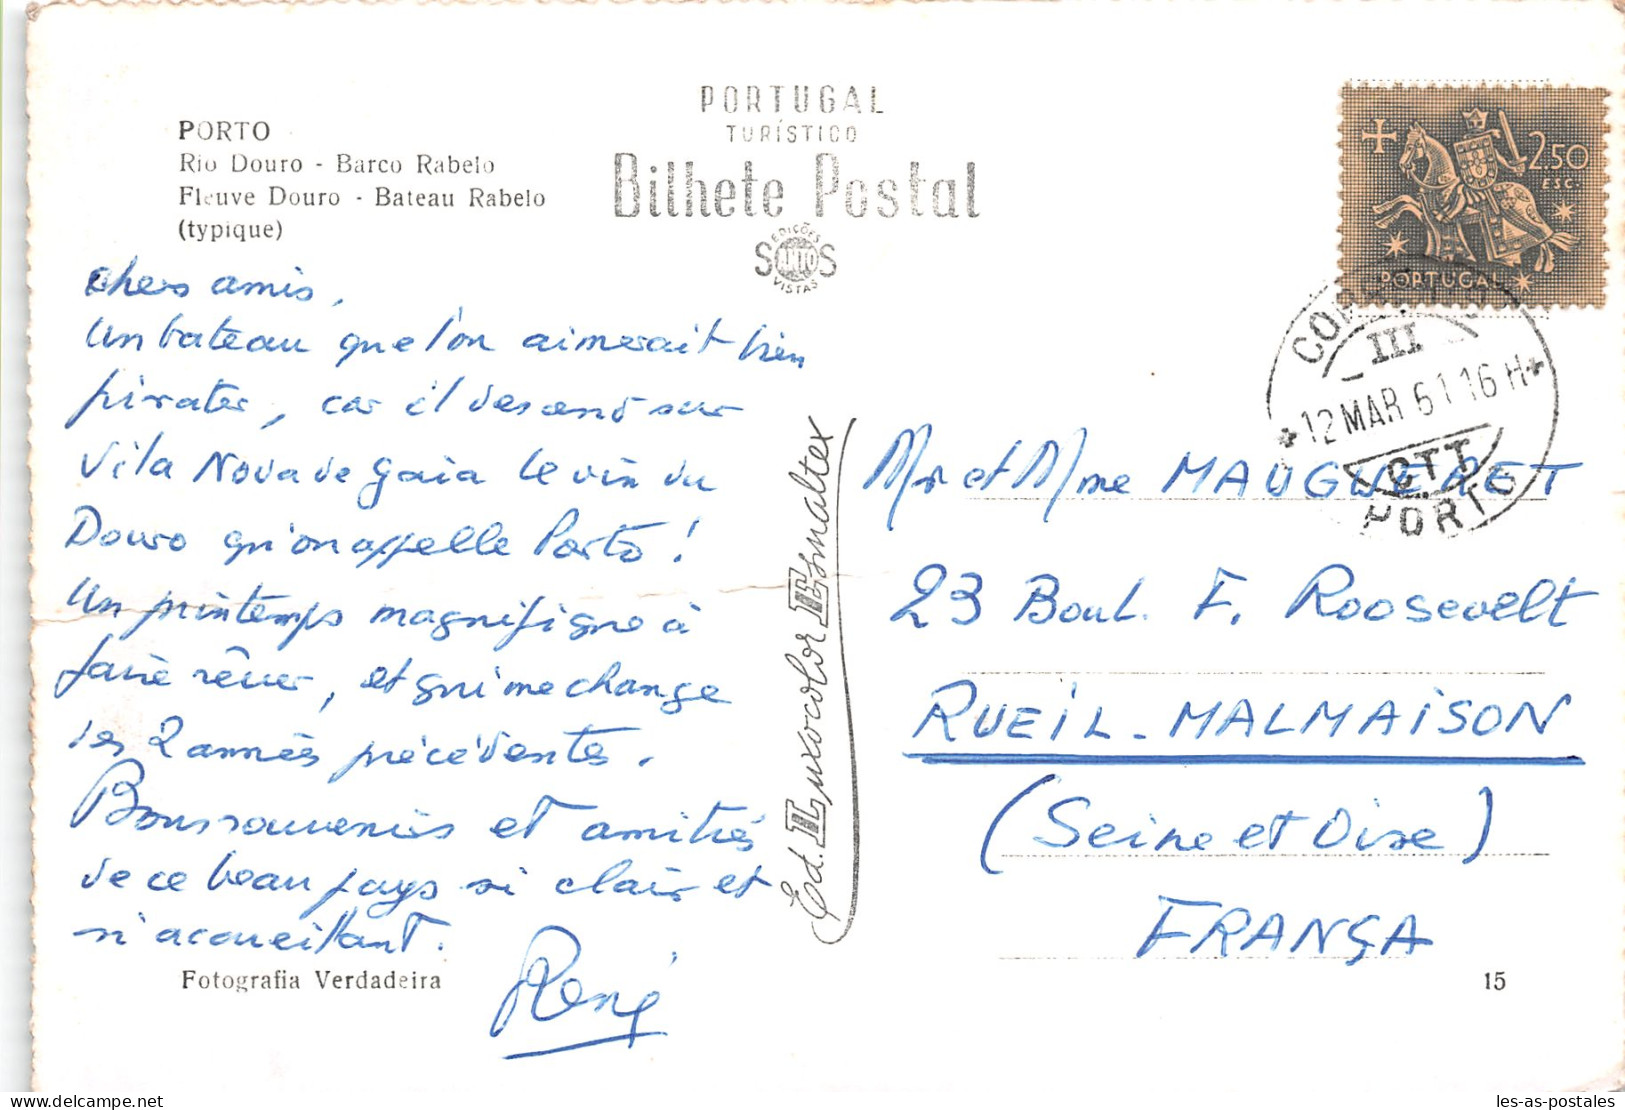 PORTO
Rio Douro - Barco Rabelo
Fleuve Douro - Bateau Rabelo
(typique)
PORTUGAL
TURÍSTICO
Bilhete Postal
EDIÇÕES
SANTOS
VISTAS
2.50
ESC.
PORTUGAL
III
12 MAR 61 16 H
CTT
PORTO
chers amis,
Un bateau que l'on aimerait bien
pirater, car il descend sur
Vila Nova de Gaia le vin du
Douro qu'on appelle Porto !
Un printemps magnifique à
faire rêver, et qui me change
des 2 années précédentes.
Bons souvenirs et amitiés
de ce beau pays si clair et
si accueillant.
René
Fotografia Verdadeira
Ed. Luxocolor Esmaltex
Mr et Mme MAUGUERET
23 Boul. F. Roosevelt
RUEIL-MALMAISON
(Seine et Oise)
FRANÇA
15
Delcampe.net
les-as-postales